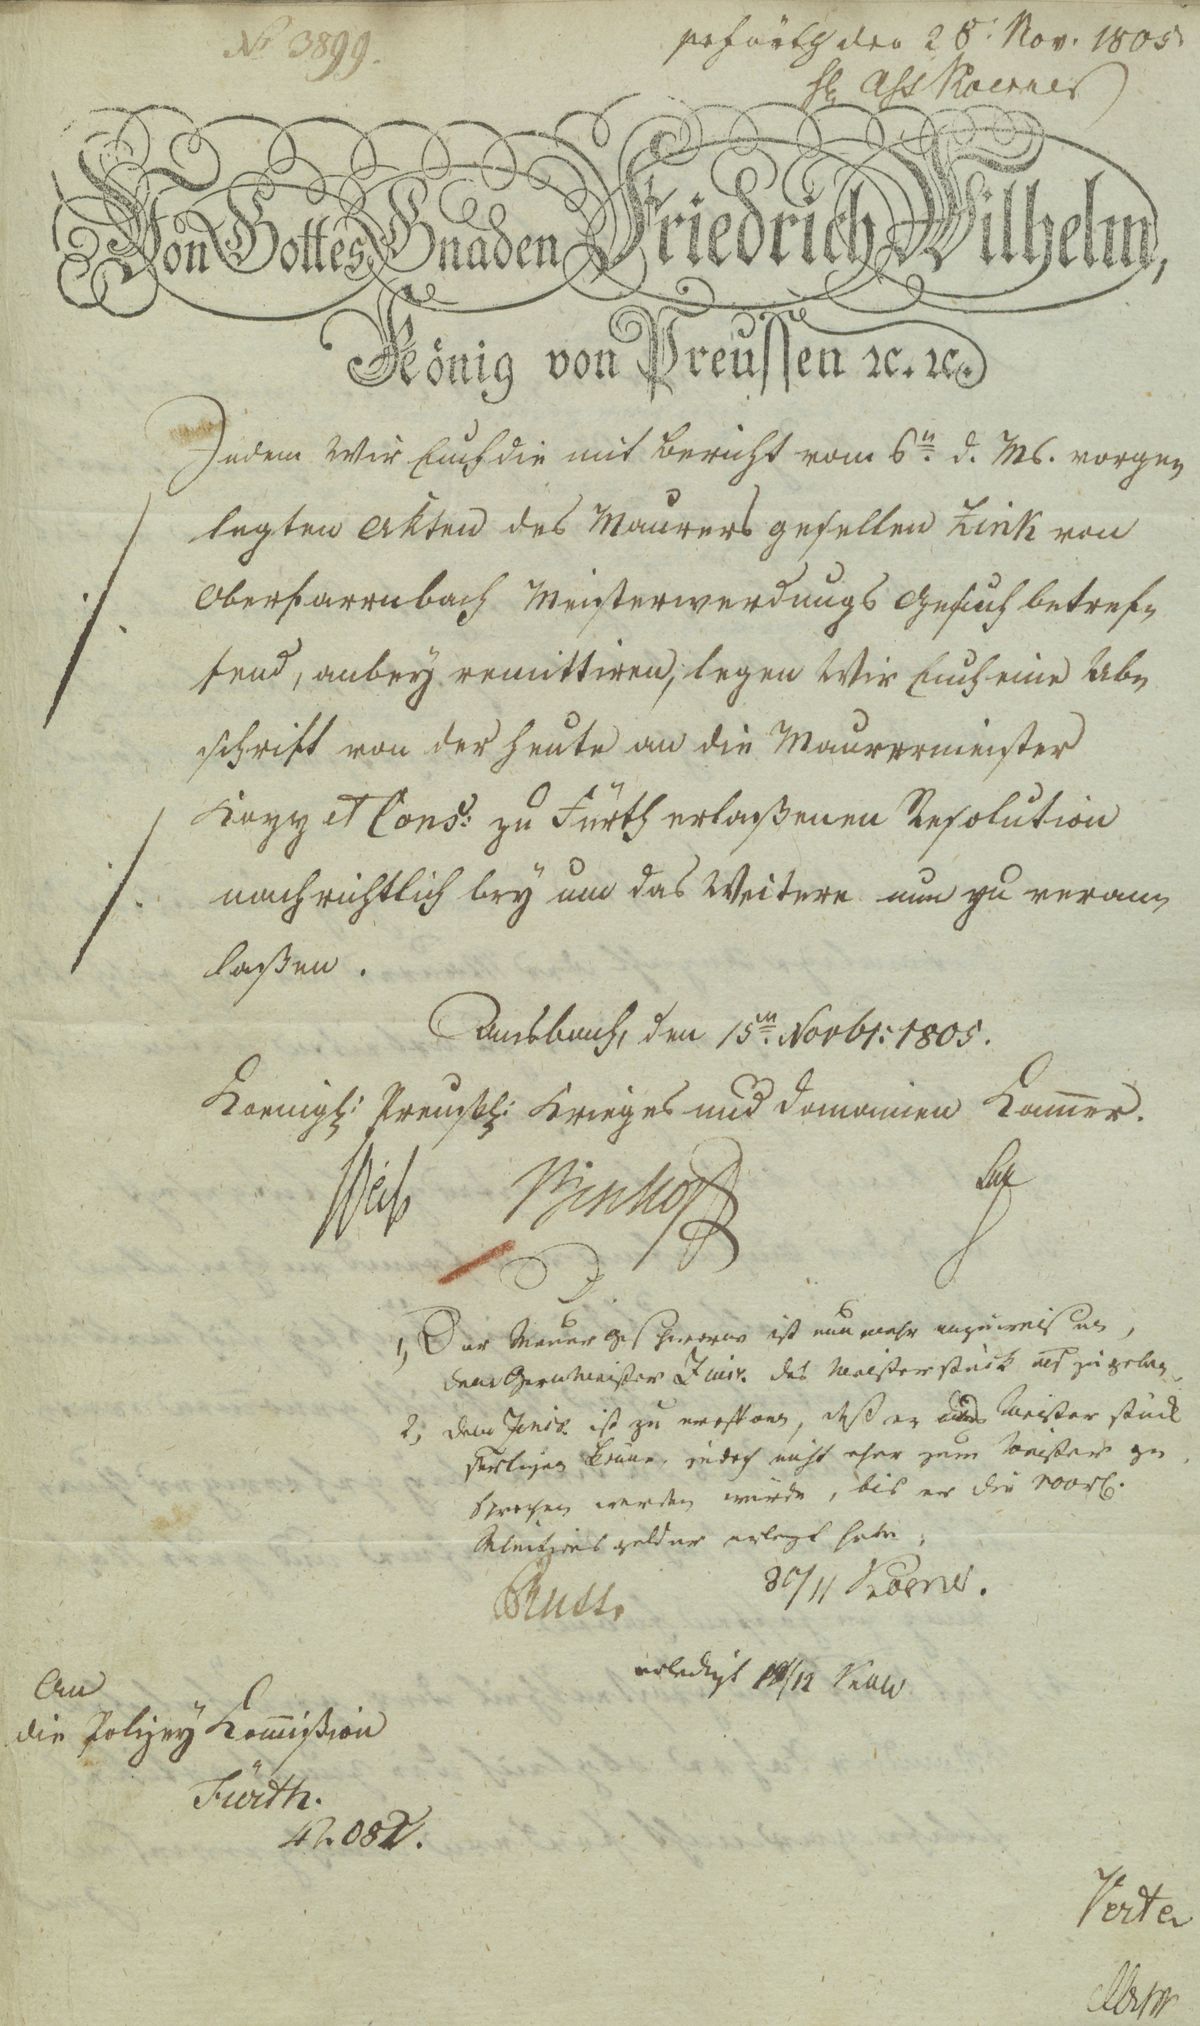 No 3899.
den 28. Nov. 1805
H. Ass Koerner
Von Gottes Gnaden Friedrich Wilhelm,
König von Preussen ꝛc. ꝛc.
Indem Wir Euch die mit Bericht vom 6n. d. Ms. vorge-
legten Akten des Maurers gesellen Link von
Oberfarrnbach Meisterwerdungs Gesuch betref-
fend, anbey remittiren, legen Wir Euch eine Ab-
schrift von der heute an die Maurermeister
Kopp et Cons: zu Fürth erlaßenen Resolution
nachrichtlich bey um das Weitere nun zu veran-
laßen.
Ansbach, den 15n. Novbr: 1805.
Koenigl: Preußl: Krieges und Domainen Kammer.
1, Das Maurer ist nunmehr anzuweisen,
dem das Meisterstück aufzugeben
2, dem ist zu eröffnen, daß er das Meister stück
fertigen könne, jedoch nicht eher zum Meister ge
sprochen werden würde, bis er die
gelder erlegt habe.
30/11 Koerner.
erledigt 12
An
die Polizey Kommißion
Fürth.
Verte